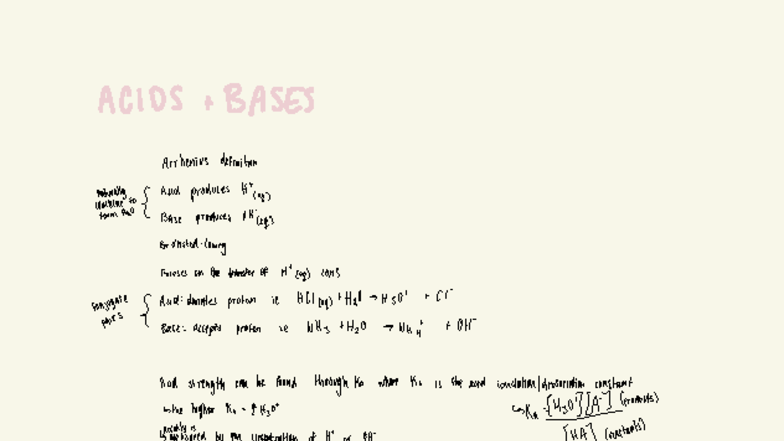 ACIDS + BASES
Arrhenius definition
Acid produces H⁺(aq)
Base produces OH⁻(aq)
form H₂O
Bronsted-Lowry
Focuses on the transfer of H⁺(aq) ions
conjugate
pairs
Acid: donates proton ie HCl(aq) + H₂O → H₃O⁺ + Cl⁻
Base: accepts proton ie NH₃ + H₂O → NH₄⁺ + OH⁻
Acid strength can be found through Ka where Ka is the acid ionization/dissociation constant
↳ the higher Ka = ↑ H₃O⁺
↳ Ka = [H₃O⁺][A⁻] (products)
[HA] (reactants)
↳ measured by the concentration of H⁺ or OH⁻